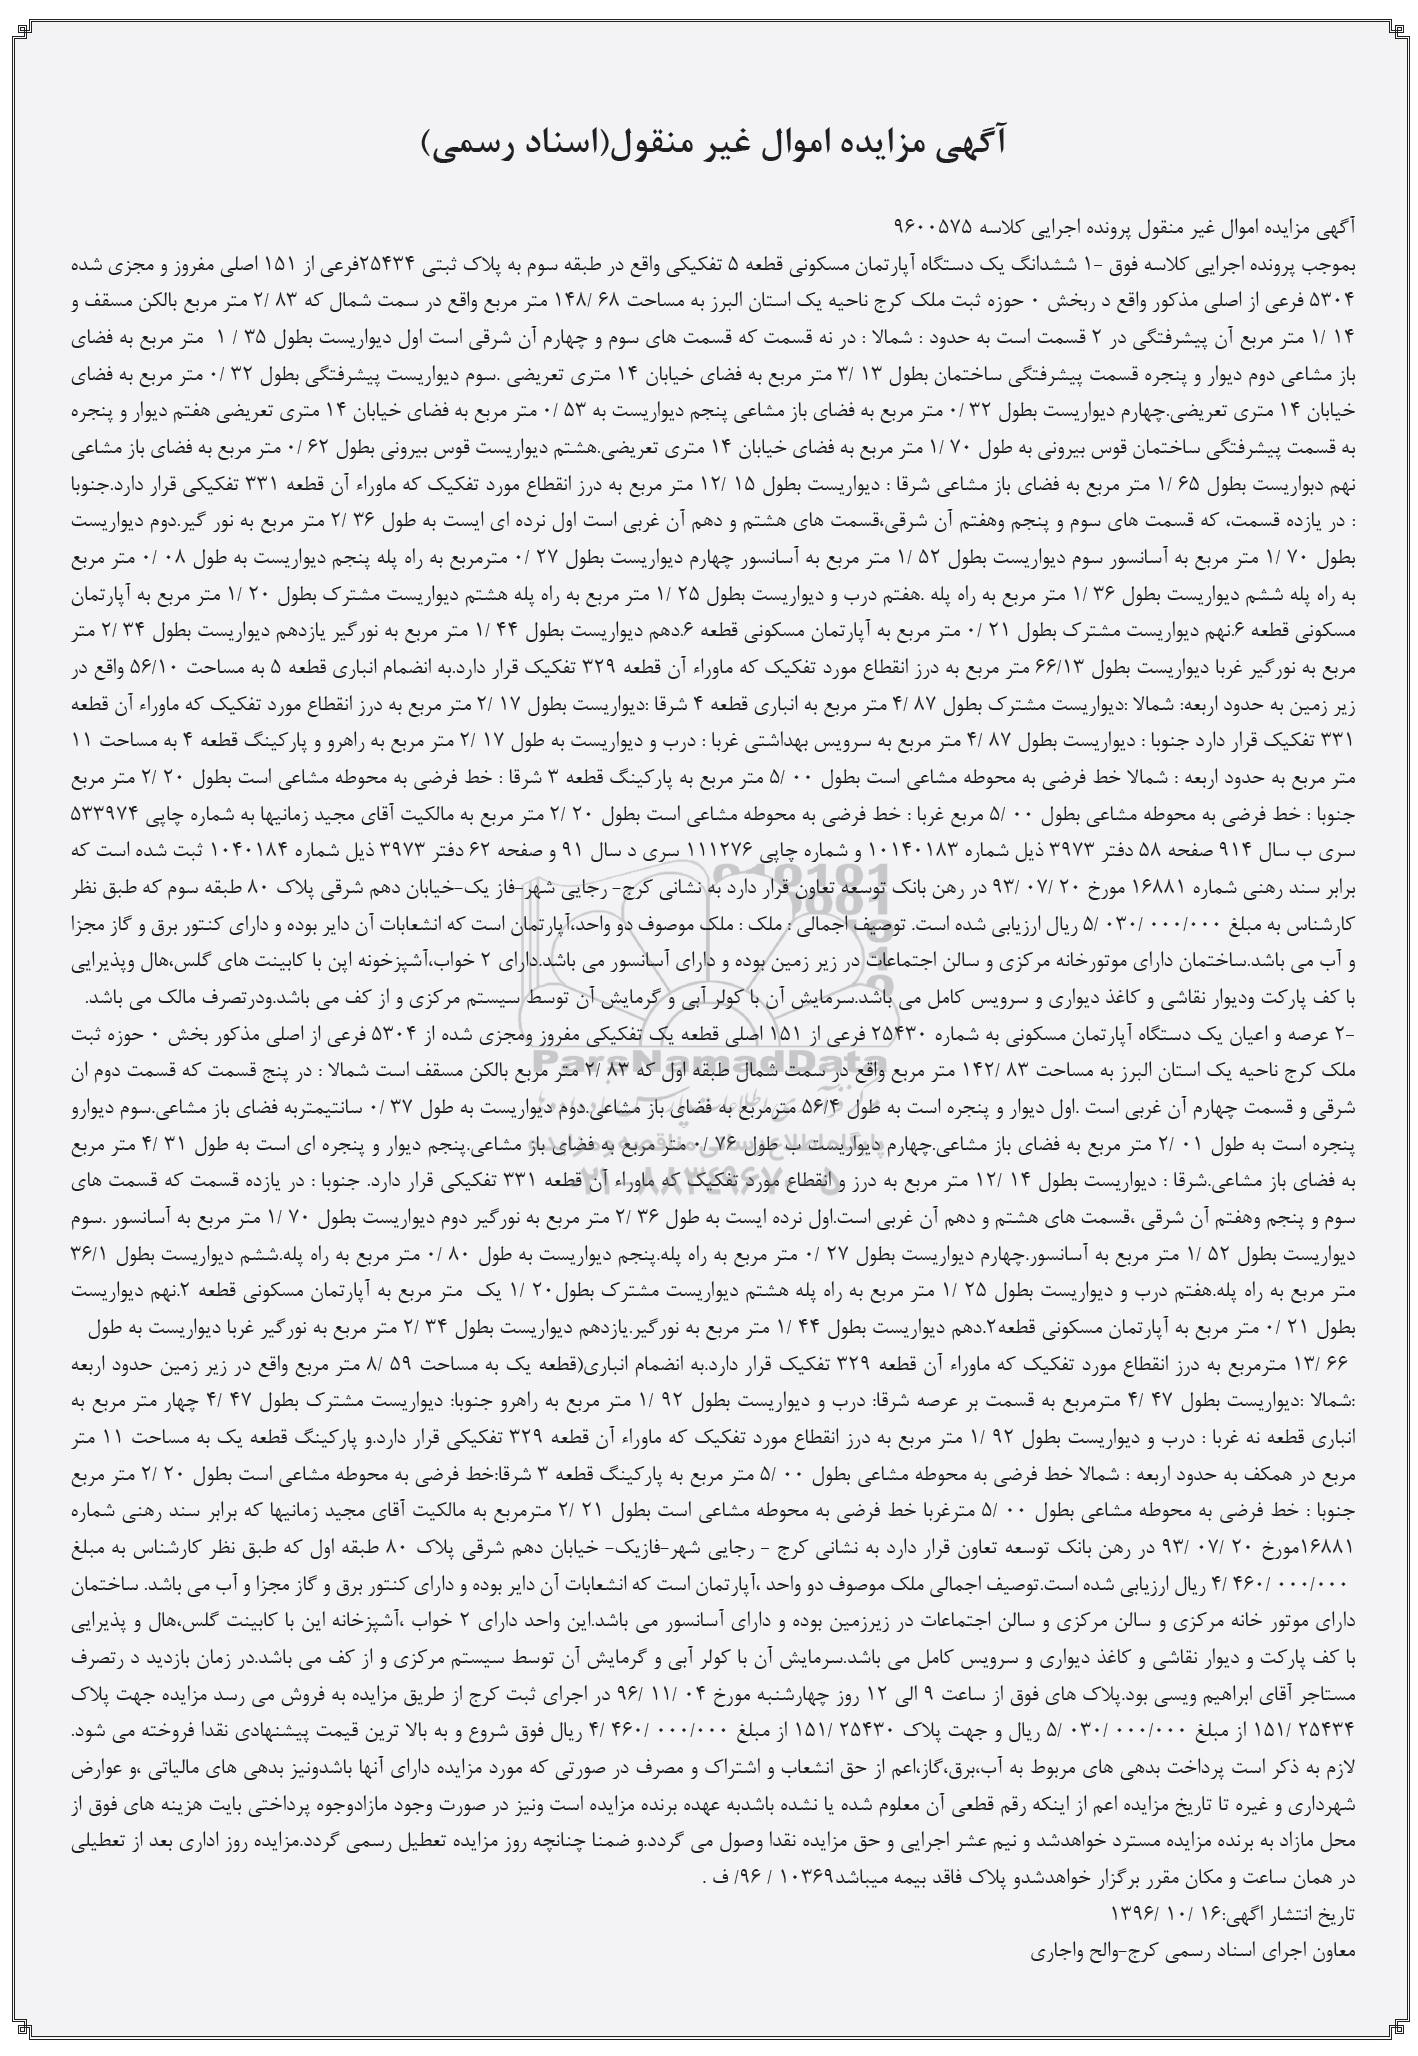 آگهی مزایده اموال غیر منقول(اسناد رسمی)
آگهی مزایده اموال غیر منقول پرونده اجرایی کلاسه ۹۶۰۰۵۷۵
بموجب پرونده اجرایی کلاسه فوق -۱ ششدانگ یک دستگاه آپارتمان مسکونی قطعه ۵ تفکیکی واقع در طبقه سوم به پلاک ثبتی ۲۵۴۳۴فرعی از ۱۵۱ اصلی مفروز و مجزی شده
۵۳۰۴ فرعی از اصلی مذکور واقع د ربخش ۰ حوزه ثبت ملک کرج ناحیه یک استان البرز به مساحت ۶۸ /۱۴۸ متر مربع واقع در سمت شمال که ۸۳ /۲ متر مربع بالکن مسقف و
۱۴ /۱ متر مربع آن پیشرفتگی در ۲ قسمت است به حدود : شمالا : در نه قسمت که قسمت های سوم و چهارم آن شرقی است اول دیواریست بطول ۳۵ / ۱ متر مربع به فضای
باز مشاعی دوم دیوار و پنجره قسمت پیشرفتگی ساختمان بطول ۱۳ /۳ متر مربع به فضای خیابان ۱۴ متری تعریضی .سوم دیواریست پیشرفتگی بطول ۳۲ /۰ متر مربع به فضای
خیابان ۱۴ متری تعریضی.چهارم دیواریست بطول ۳۲ /۰ متر مربع به فضای باز مشاعی پنجم دیواریست به ۵۳ /۰ متر مربع به فضای خیابان ۱۴ متری تعریضی هفتم دیوار و پنجره
به قسمت پیشرفتگی ساختمان قوس بیرونی به طول ۷۰ /۱ متر مربع به فضای خیابان ۱۴ متری تعریضی.هشتم دیواریست قوس بیرونی بطول ۶۲ /۰ متر مربع به فضای باز مشاعی
نهم دبواریست بطول ۶۵ /۱ متر مربع به فضای باز مشاعی شرقا : دیواریست بطول ۱۵ /۱۲ متر مربع به درز انقطاع مورد تفکیک که ماوراء آن قطعه ۳۳۱ تفکیکی قرار دارد.جنوبا
: در یازده قسمت، که قسمت های سوم و پنجم وهفتم آن شرقی،قسمت های هشتم و دهم آن غربی است اول نرده ای ایست به طول ۳۶ /۲ متر مربع به نور گیر.دوم دیواریست
بطول ۷۰ /۱ متر مربع به آسانسور سوم دیواریست بطول ۵۲ /۱ متر مربع به آسانسور چهارم دیواریست بطول ۲۷ /۰ مترمربع به راه پله پنجم دیواریست به طول ۰۸ /۰ متر مربع
به راه پله ششم دیواریست بطول ۳۶ /۱ متر مربع به راه پله .هفتم درب و دیواریست بطول ۲۵ /۱ متر مربع به راه پله هشتم دیواریست مشترک بطول ۲۰ /۱ متر مربع به آپارتمان
مسکونی قطعه ۶.نهم دیواریست مشترک بطول ۲۱ /۰ متر مربع به آپارتمان مسکونی قطعه ۶.دهم دیواریست بطول ۴۴ /۱ متر مربع به نورگیر یازدهم دیواریست بطول ۳۴ /۲ متر
مربع به نورگیر غربا دیواریست بطول ۶۶/۱۳ متر مربع به درز انقطاع مورد تفکیک که ماوراء آن قطعه ۳۲۹ تفکیک قرار دارد.به انضمام انباری قطعه ۵ به مساحت ۵۶/۱۰ واقع در
زیر زمین به حدود اربعه: شمالا :دیواریست مشترک بطول ۸۷ /۴ متر مربع به انباری قطعه ۴ شرقا :دیواریست بطول ۱۷ /۲ متر مربع به درز انقطاع مورد تفکیک که ماوراء آن قطعه
۳۳۱ تفکیک قرار دارد جنوبا : دیواریست بطول ۸۷ /۴ متر مربع به سرویس بهداشتی غربا : درب و دیواریست به طول ۱۷ /۲ متر مربع به راهرو و پارکینگ قطعه ۴ به مساحت ۱۱
متر مربع به حدود اربعه : شمالا خط فرضی به محوطه مشاعی است بطول ۰۰ /۵ متر مربع به پارکینگ قطعه ۳ شرقا : خط فرضی به محوطه مشاعی است بطول ۲۰ /۲ متر مربع
جنوبا : خط فرضی به محوطه مشاعی بطول ۰۰ /۵ مربع غربا : خط فرضی به محوطه مشاعی است بطول ۲۰ /۲ متر مربع به مالکیت آقای مجید زمانیها به شماره چاپی ۵۳۳۹۷۴
سری ب سال ۹۱۴ صفحه ۵۸ دفتر ۳۹۷۳ ذیل شماره ۱۰۱۴۰۱۸۳ و شماره چاپی ۱۱۱۲۷۶ سری د سال ۹۱ و صفحه ۶۲ دفتر ۳۹۷۳ ذیل شماره ۱۰۴۰۱۸۴ ثبت شده است که
برابر سند رهنی شماره ۱۶۸۸۱ مورخ ۲۰ /۰۷ /۹۳ در رهن بانک توسعه تعاون قرار دارد به نشانی کرج- رجایی شهر-فاز یک-خیابان دهم شرقی پلاک ۸۰ طبقه سوم که طبق نظر
کارشناس به مبلغ ۰۰۰/۰۰۰ /۰۳۰ /۵ ریال ارزیابی شده است. توصیف اجمالی : ملک : ملک موصوف دو واحد،آپارتمان است که انشعابات آن دایر بوده و دارای کنتور برق و گاز مجزا
و آب می باشد.ساختمان دارای موتورخانه مرکزی و سالن اجتماعات در زیر زمین بوده و دارای آسانسور می باشد.دارای ۲ خواب،آشپزخونه اپن با کابینت های گلس،هال وپذیرایی
با کف پارکت ودیوار نقاشی و کاغذ دیواری و سرویس کامل می باشد.سرمایش آن با کولر آبی و گرمایش آن توسط سیستم مرکزی و از کف می باشد.ودرتصرف مالک می باشد.
-۲ عرصه و اعیان یک دستگاه آپارتمان مسکونی به شماره ۲۵۴۳۰ فرعی از ۱۵۱ اصلی قطعه یک تفکیکی مفروز ومجزی شده از ۵۳۰۴ فرعی از اصلی مذکور بخش ۰ حوزه ثبت
ملک کرج ناحیه یک استان البرز به مساحت ۸۳ /۱۴۲ متر مربع واقع در سمت شمال طبقه اول که ۸۳ /۲ متر مربع بالکن مسقف است شمالا : در پنج قسمت که قسمت دوم ان
شرقی و قسمت چهارم آن غربی است .اول دیوار و پنجره است به طول ۵۶/۴ مترمربع به فضای باز مشاعی.دوم دیواریست به طول ۳۷ /۰ سانتیمتربه فضای باز مشاعی.سوم دیوارو
پنجره است به طول ۰۱ /۲ متر مربع به فضای باز مشاعی.چهارم دیواریست ب طول ۷۶ /۰ متر مربع به فضای باز مشاعی.پنجم دیوار و پنجره ای است به طول ۳۱ /۴ متر مربع
به فضای باز مشاعی.شرقا : دیواریست بطول ۱۴ /۱۲ متر مربع به درز و انقطاع مورد تفکیک که ماوراء آن قطعه ۳۳۱ تفکیکی قرار دارد. جنوبا : در یازده قسمت که قسمت های
سوم و پنجم وهفتم آن شرقی ،قسمت های هشتم و دهم آن غربی است.اول نرده ایست به طول ۳۶ /۲ متر مربع به نورگیر دوم دیواریست بطول ۷۰ /۱ متر مربع به آسانسور .سوم
دیواریست بطول ۵۲ /۱ متر مربع به آسانسور.چهارم دیواریست بطول ۲۷ /۰ متر مربع به راه پله.پنجم دیواریست به طول ۸۰ /۰ متر مربع به راه پله.ششم دیواریست بطول ۳۶/۱
متر مربع به راه پله.هفتم درب و دیواریست بطول ۲۵ /۱ متر مربع به راه پله هشتم دیواریست مشترک بطول۲۰ /۱ یک متر مربع به آپارتمان مسکونی قطعه ۲.نهم دیواریست
بطول ۲۱ /۰ متر مربع به آپارتمان مسکونی قطعه۲.دهم دیواریست بطول ۴۴ /۱ متر مربع به نورگیر.یازدهم دیواریست بطول ۳۴ /۲ متر مربع به نورگیر غربا دیواریست به طول
۶۶ /۱۳ مترمربع به درز انقطاع مورد تفکیک که ماوراء آن قطعه ۳۲۹ تفکیک قرار دارد.به انضمام انباری(قطعه یک به مساحت ۵۹ /۸ متر مربع واقع در زیر زمین حدود اربعه
:شمالا :دیواریست بطول ۴۷ /۴ مترمربع به قسمت بر عرصه شرقا: درب و دیواریست بطول ۹۲ /۱ متر مربع به راهرو جنوبا: دیواریست مشترک بطول ۴۷ /۴ چهار متر مربع به
انباری قطعه نه غربا : درب و دیواریست بطول ۹۲ /۱ متر مربع به درز انقطاع مورد تفکیک که ماوراء آن قطعه ۳۲۹ تفکیکی قرار دارد.و پارکینگ قطعه یک به مساحت ۱۱ متر
مربع در همکف به حدود اربعه : شمالا خط فرضی به محوطه مشاعی بطول ۰۰ /۵ متر مربع به پارکینگ قطعه ۳ شرقا:خط فرضی به محوطه مشاعی است بطول ۲۰ /۲ متر مربع
جنوبا : خط فرضی به محوطه مشاعی بطول ۰۰ /۵ مترغربا خط فرضی به محوطه مشاعی است بطول ۲۱ /۲ مترمربع به مالکیت آقای مجید زمانیها که برابر سند رهنی شماره
۱۶۸۸۱مورخ ۲۰ /۰۷ /۹۳ در رهن بانک توسعه تعاون قرار دارد به نشانی کرج - رجایی شهر-فازیک- خیابان دهم شرقی پلاک ۸۰ طبقه اول که طبق نظر کارشناس به مبلغ
۰۰۰/۰۰۰ /۴۶۰ /۴ ریال ارزیابی شده است.توصیف اجمالی ملک موصوف دو واحد ،آپارتمان است که انشعابات آن دایر بوده و دارای کنتور برق و گاز مجزا و آب می باشد. ساختمان
دارای موتور خانه مرکزی و سالن مرکزی و سالن اجتماعات در زیرزمین بوده و دارای آسانسور می باشد.این واحد دارای ۲ خواب ،آشپزخانه این با کابینت گلس،هال و پذیرایی
با کف پارکت و دیوار نقاشی و کاغذ دیواری و سرویس کامل می باشد.سرمایش آن با کولر آبی و گرمایش آن توسط سیستم مرکزی و از کف می باشد.در زمان بازدید د رتصرف
مستاجر آقای ابراهیم ویسی بود.پلاک های فوق از ساعت ۹ الی ۱۲ روز چهارشنبه مورخ ۰۴ /۱۱ /۹۶ در اجرای ثبت کرج از طریق مزایده به فروش می رسد مزایده جهت پلاک
۲۵۴۳۴ /۱۵۱ از مبلغ ۰۰۰/۰۰۰ /۰۳۰ /۵ ریال و جهت پلاک ۲۵۴۳۰ /۱۵۱ از مبلغ ۰۰۰/۰۰۰ /۴۶۰ /۴ ریال فوق شروع و به بالا ترین قیمت پیشنهادی نقدا فروخته می شود.
لازم به ذکر است پرداخت بدهی های مربوط به آب،برق،گاز،اعم از حق انشعاب و اشتراک و مصرف در صورتی که مورد مزایده دارای آنها باشدونیز بدهی های مالیاتی ،و عوارض
شهرداری و غیره تا تاریخ مزایده اعم از اینکه رقم قطعی آن معلوم شده یا نشده باشدبه عهده برنده مزایده است ونیز در صورت وجود مازادوجوه پرداختی بایت هزینه های فوق از
محل مازاد به برنده مزایده مسترد خواهدشد و نیم عشر اجرایی و حق مزایده نقدا وصول می گردد.و ضمنا چنانچه روز مزایده تعطیل رسمی گردد.مزایده روز اداری بعد از تعطیلی
در همان ساعت و مکان مقرر برگزار خواهدشدو پلاک فاقد بیمه میباشد۱۰۳۶۹ / ۹۶/ ف .
تاریخ انتشار اگهی:۱۶ /۱۰ /۱۳۹۶
معاون اجرای اسناد رسمی کرج-والح واجاری
ParsNamadData